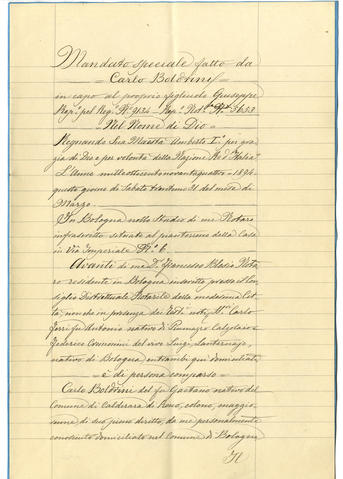 Mandato speciale fatto da
= Carlo Boldrini =
in capo al proprio figliuolo Giuseppe
Rep.º pel Reg.º Nº 9134 Rep.º Not.le Nº 3653
= Nel Nome di Dio =
Regnando Sua Maestà Umberto I.º per gra
zia di Dio e per volontà della Nazione Re d'Italia
L'Anno milleottocentonovantaquattro = 1894
questo giorno di Sabato trentuno 31 del mese di
Marzo.
In Bologna nello Studio di me Notaro
infrascritto situato al pianterreno della Casa
in Via Imperiale Nº 6.
Avanti di me D.r Francesco Blesio Nota
ro residente in Bologna inscritto presso il Con
siglio Distrettuale Notarile della medesima Cit
tà, nonché in presenza dei Testi noti, Sig.ri Carlo
fu Antonio nativo di Pumazzo Calzolaio e
Federico del vivo Luigi,
nativo di Bologna entrambi qui domiciliati
= è di persona comparso =
Carlo Boldrini del fu Gaetano nativo del
Comune di Calderara di Reno, colono, maggio
renne di suo pieno diritto, da me personalmente
conosciuto domiciliato nel Comune di Bologna
Il